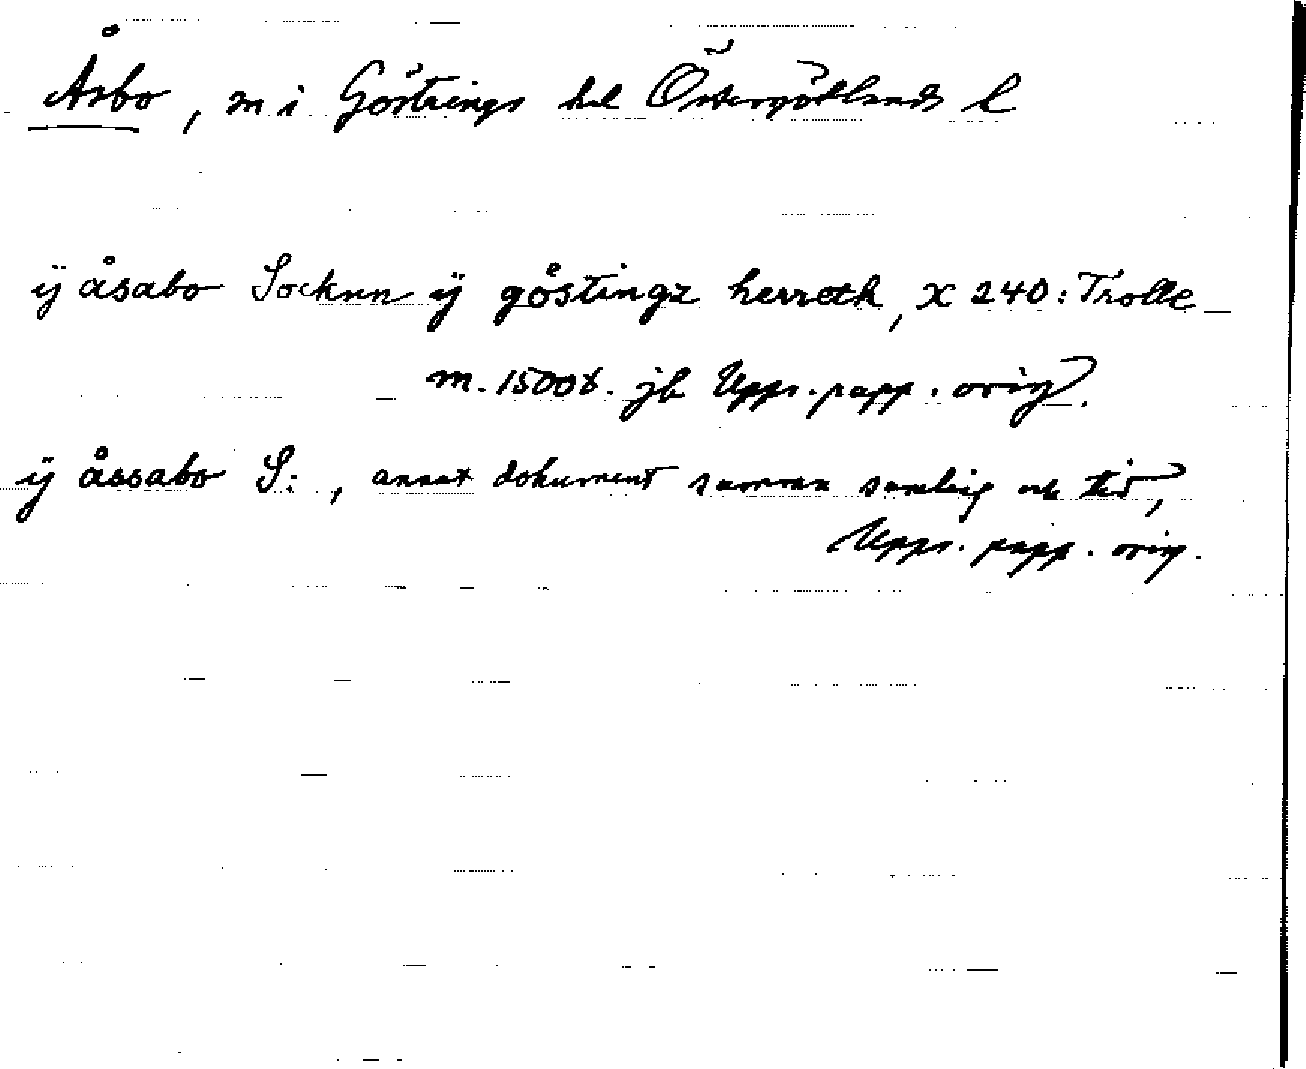 Åsbo, sn i Göstrings hd Östergötlands l
ÿ åsabo Socknn ÿ göstingz herreth, X 240: Trolle
m. 1500t. jb Upps. papp. orig.
ÿ åssabo S:, annat dokument samma samling och tid,
Upps. papp. orig.